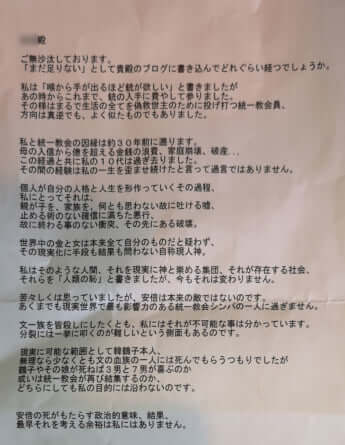 殿
ご無沙汰しております。
「まだ足りない」として貴殿のブログに書き込んでどれぐらい経つでしょうか。
私は「喉から手が出るほど銃が欲しい」と書きましたが
あの時からこれまで、銃の入手に費やして参りました。
その様はまるで生活の全てを偽救世主のために投げ打つ統一教会員、
方向は真逆でも、よく似たものでもありました。
私と統一教会の因縁は約30年前に遡ります。
母の入信から億を超える金銭の浪費、家庭崩壊、破産...
この経過と共に私の10代は過ぎ去りました。
その間の経験は私の一生を歪ませ続けたと言って過言ではありません。
個人が自分の人格と人生を形作っていくその過程、
私にとってそれは、
親が子を、家族を、何とも思わない故に吐ける嘘、
止める術のない確信に満ちた悪行、
故に終わる事のない衝突、その先にある破壊。
世界中の金と女は本来全て自分のものだと疑わず、
その現実化に手段も結果も問わない自称現人神。
私はそのような人間、それを現実に神と崇める集団、それが存在する社会、
それらを「人類の恥」と書きましたが、今もそれは変わりません。
苦々しくは思っていましたが、安倍は本来の敵ではないのです。
あくまでも現実世界で最も影響力のある統一教会シンパの一人に過ぎません。
文一族を皆殺しにしたくとも、私にはそれが不可能な事は分かっています。
分裂には一挙に叩くのが難しいという側面もあるのです。
現実に可能な範囲として韓鶴子本人、
無理なら少なくとも文の血族の一人には死んでもらうつもりでしたが
鶴子やその娘が死ねば3男と7男が喜ぶのか
或いは統一教会が再び結集するのか、
どちらにしても私の目的には沿わないのです。
安倍の死がもたらす政治的意味、結果、
最早それを考える余裕は私にはありません。